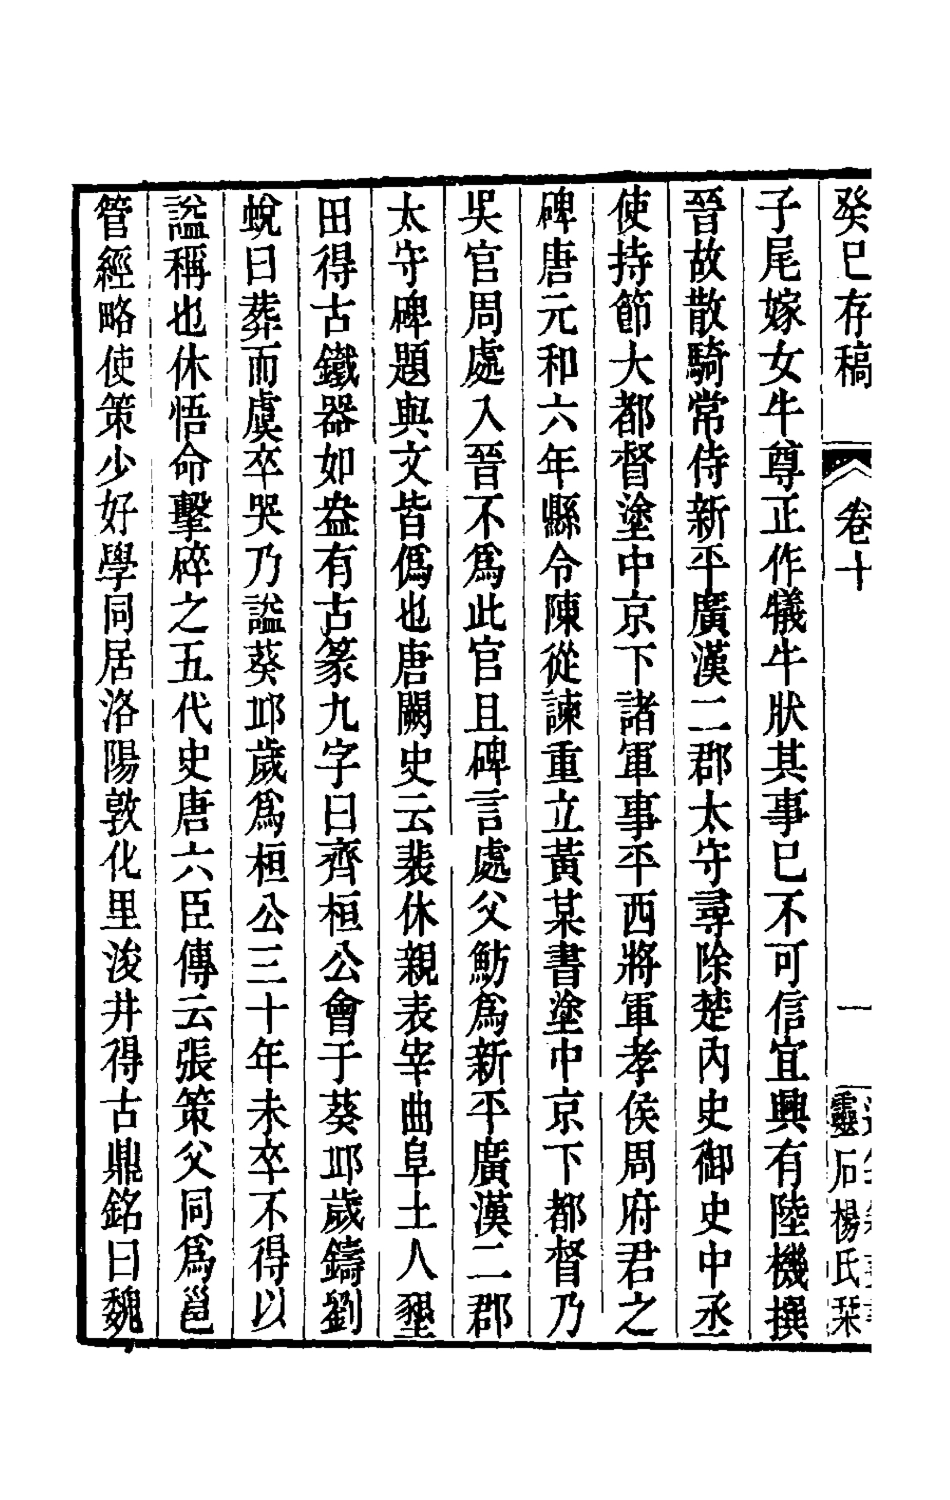 癸巳存稿　卷十　一　靈石楊氏栞
子尾嫁女牛尊正作犧牛狀其事已不可信宜興有陸機撰
晉故散騎常侍新平廣漢二郡太守尋除楚內史御史中丞
使持節大都督塗中京下諸軍事平西將軍孝侯周府君之
碑唐元和六年縣令陳從諫重立黃某書塗中京下都督乃
吳官周處入晉不爲此官且碑言處父魴爲新平廣漢二郡
太守碑題與文皆僞也唐闕史云裴休親表宰曲阜土人墾
田得古鐵器如盎有古篆九字曰齊桓公會于葵邱歲鑄劉
蛻曰葬而虞卒哭乃謚葵邱歲爲桓公三十年未卒不得以
謚稱也休悟命擊碎之五代史唐六臣傳云張策父同爲邕
管經略使策少好學同居洛陽敦化里浚井得古鼎銘曰魏